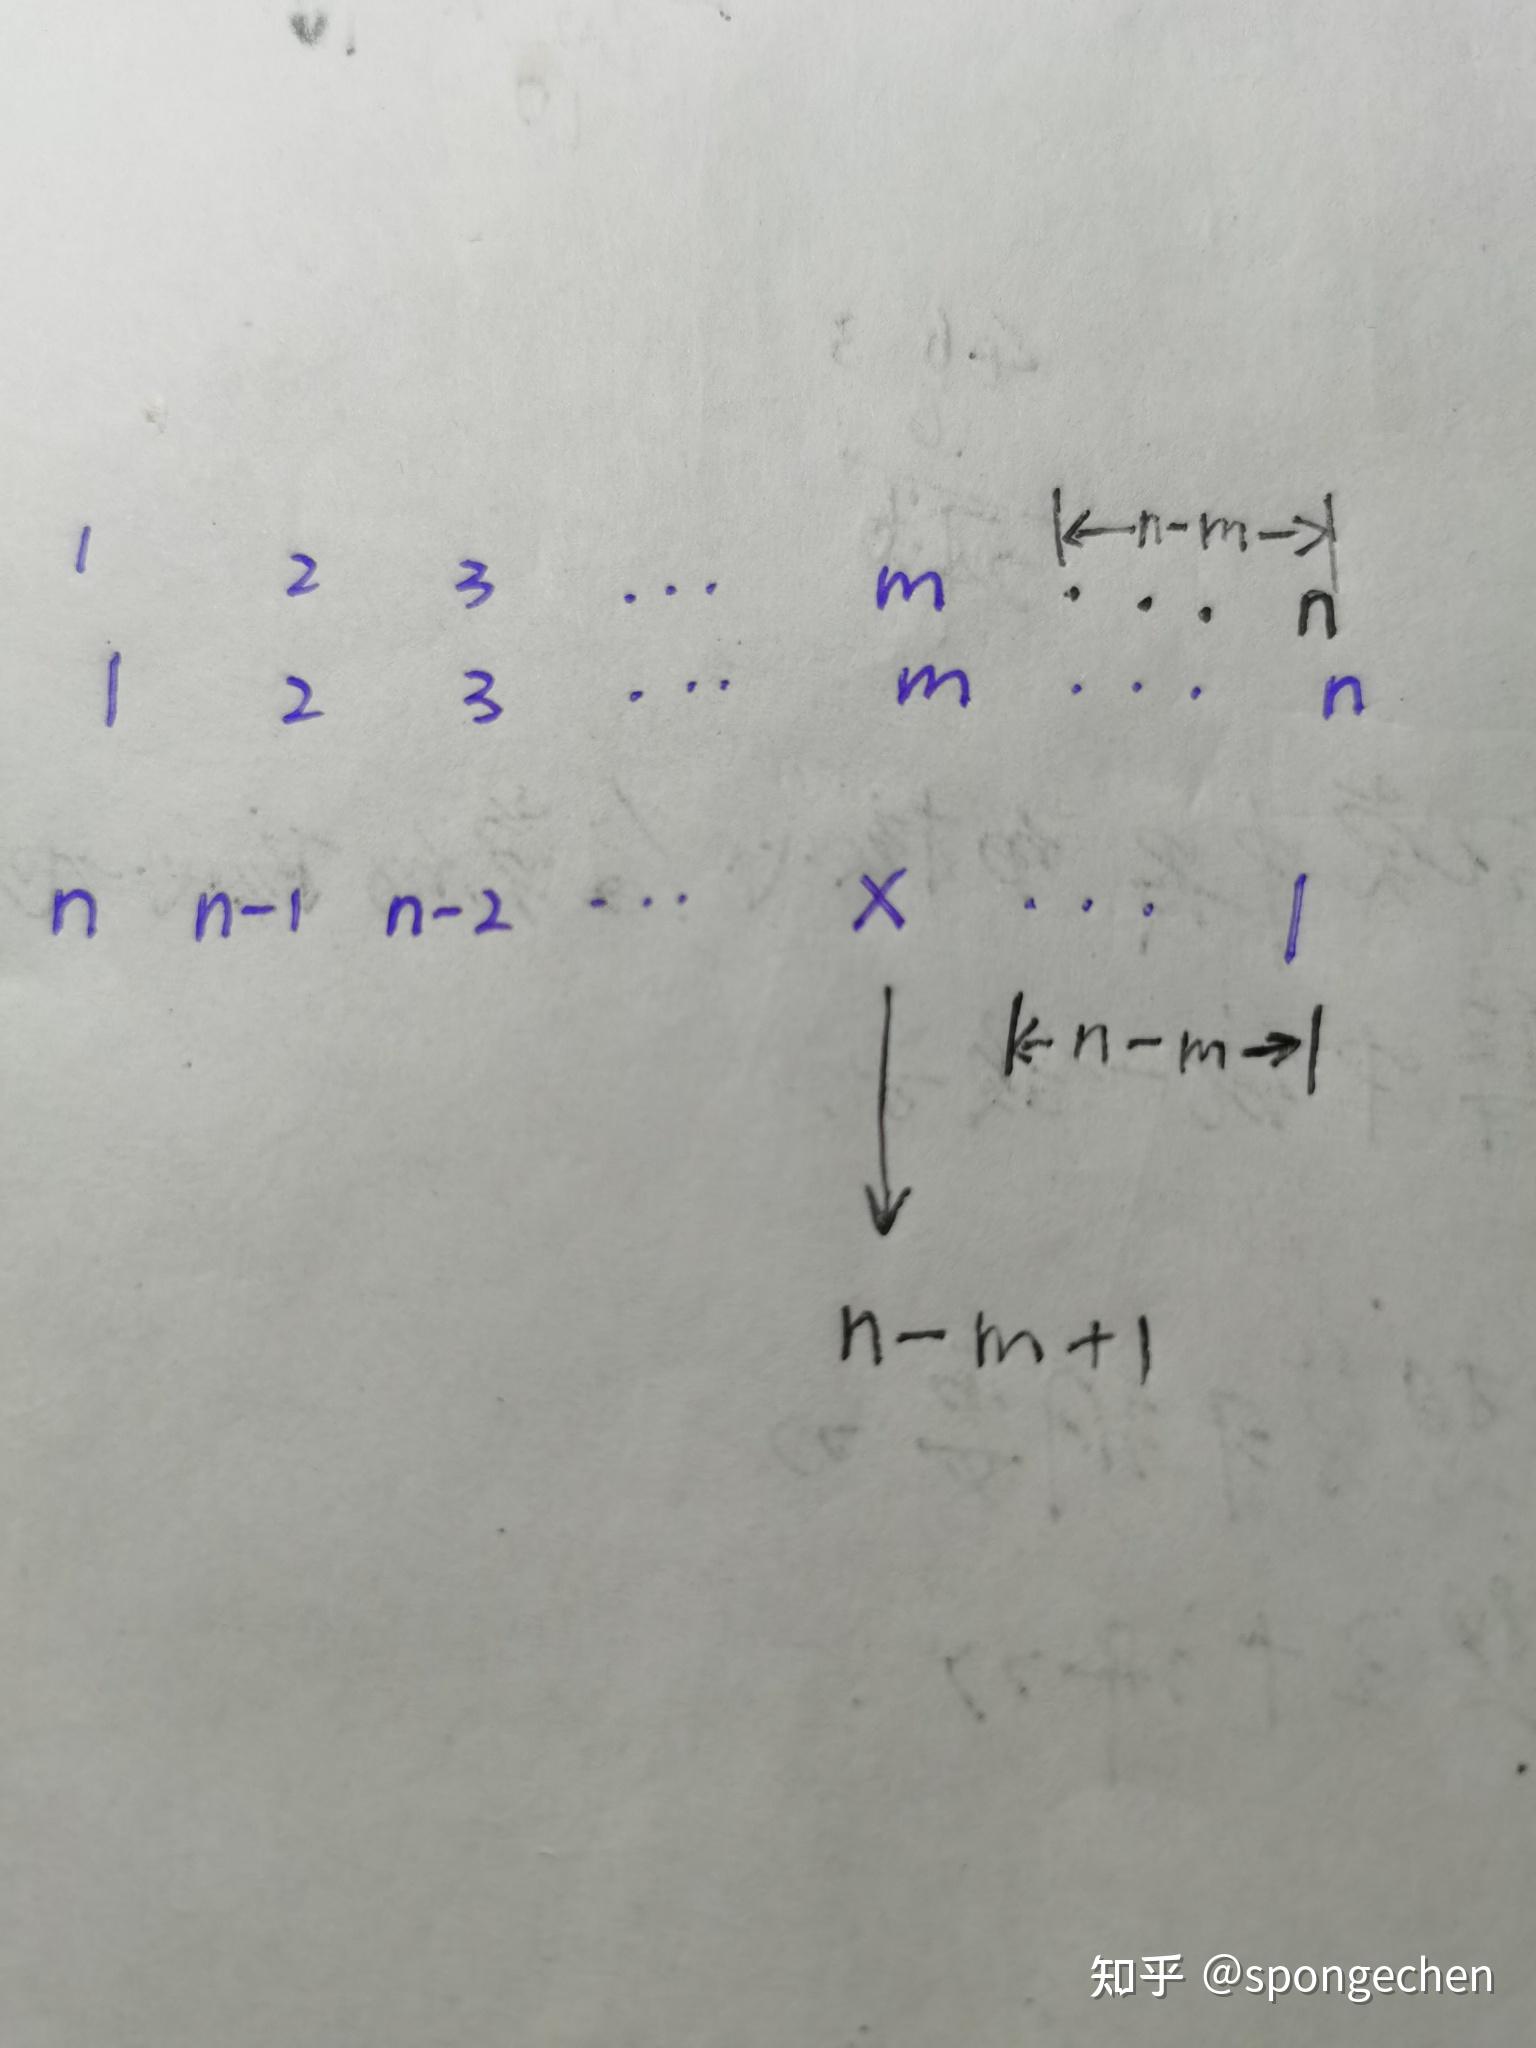 |←n-m→|
1 2 3 ... m ... n
1 2 3 ... m ... n
n n-1 n-2 ... x ... 1
|←n-m→|
↓
n-m+1
知乎 @spongechen